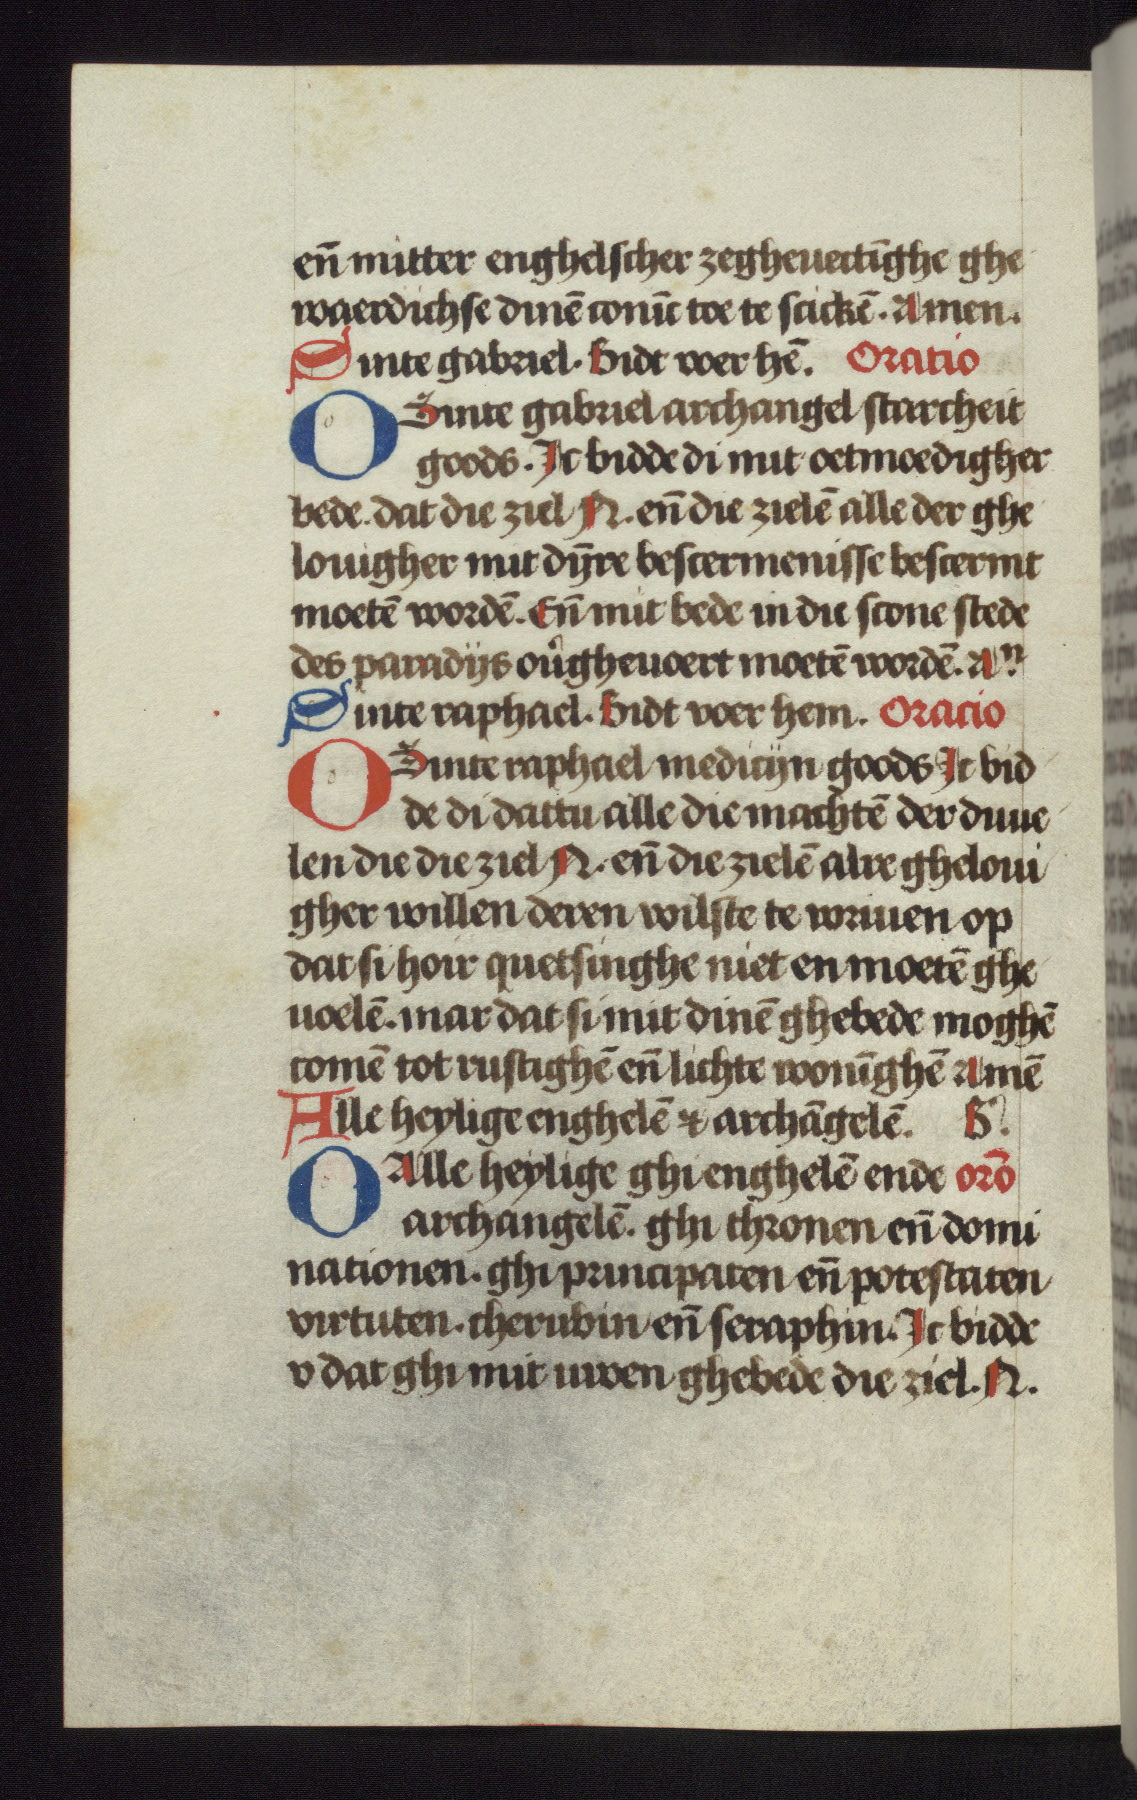 en̄ mitter enghelscher zegheuectīghe ghe
waerdichse dinē conīc toe te scickē. Amen.
Sinte gabriel. Bidt voer hē. Oratio
O Sinte gabriel archangel starcheit
goods. Ic bidde di mit oetmoedigher
bede. dat die ziel N. en̄ die zielē alle der ghe
louigher mit dȳre bescermenisse bescermt
moetē wordē. En̄ mit bede in die scone stede
des paradijs ou̓gheuoert moetē wordē. Aⁿ.
Sinte raphael. Bidt voer hem. Oracio
O Sinte raphael medicijn goods Ic bid
de di dattu alle die machtē der duue
len die die ziel N. en̄ die zielē alre gheloui
gher willen deren wilste te wriuen op
dat si hoir quetsinghe niet en moetē ghe
uoelē. mar dat si mit dinē ghebede moghē
comē tot rustighē en̄ lichte wonīghē Amē
Alle heylige enghelē ⁊ archāgelē. B.
O Alle heylige ghi enghelē ende orō
archangelē. ghi thronen en̄ domi
nationen. ghi principaten en̄ potestaten
virtuten. cherubin en̄ seraphin. Ic bidde
v dat ghi mit uwen ghebede die ziel. N.